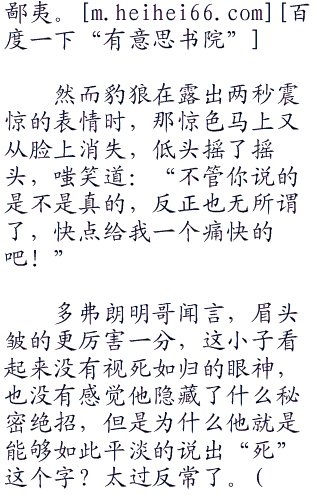 鄙夷。[m.heihei66.com][百
度一下“有意思书院”]
然而豹狼在露出两秒震
惊的表情时，那惊色马上又
从脸上消失，低头摇了摇
头，嗤笑道：“不管你说的
是不是真的，反正也无所谓
了，快点给我一个痛快的
吧！”
多弗朗明哥闻言，眉头
皱的更厉害一分，这小子看
起来没有视死如归的眼神，
也没有感觉他隐藏了什么秘
密绝招，但是为什么他就是
能够如此平淡的说出“死”
这个字？太过反常了。(